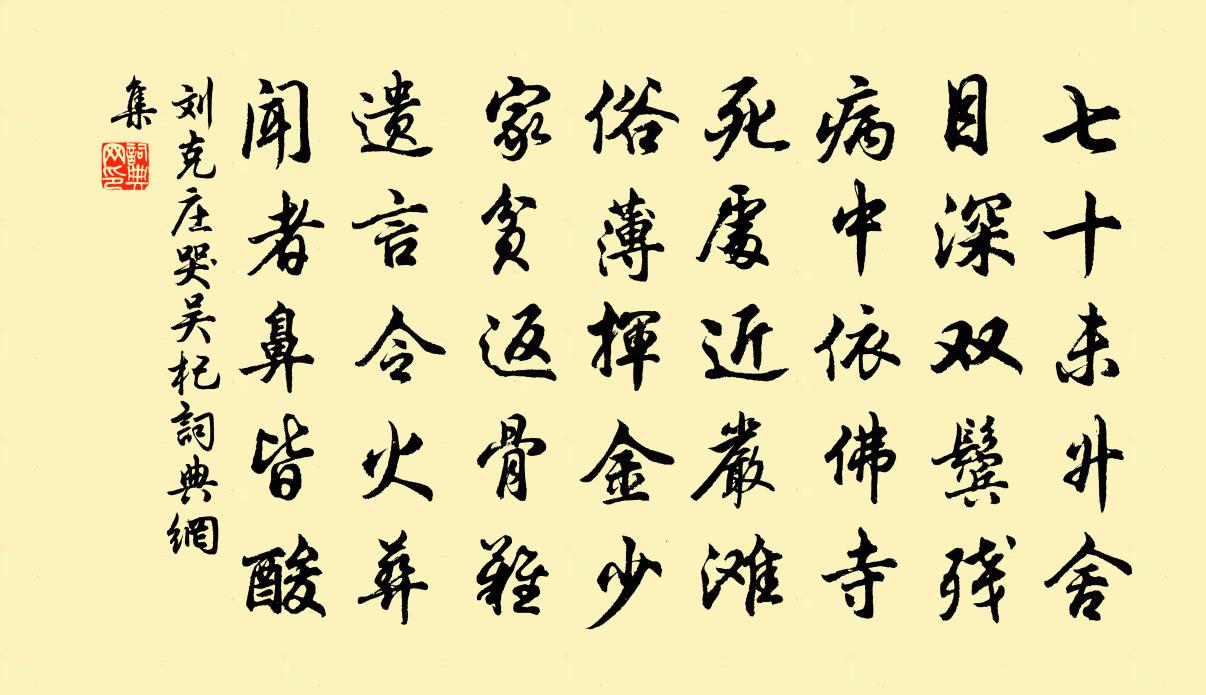 七十未升舍
目深双鬓残
病中依佛寺
死處近嚴滩
俗薄揮金少
家贫返骨難
遗言令火葬
闻者鼻皆酸
刘克庄哭吴杞詞典網
集
詞典网印